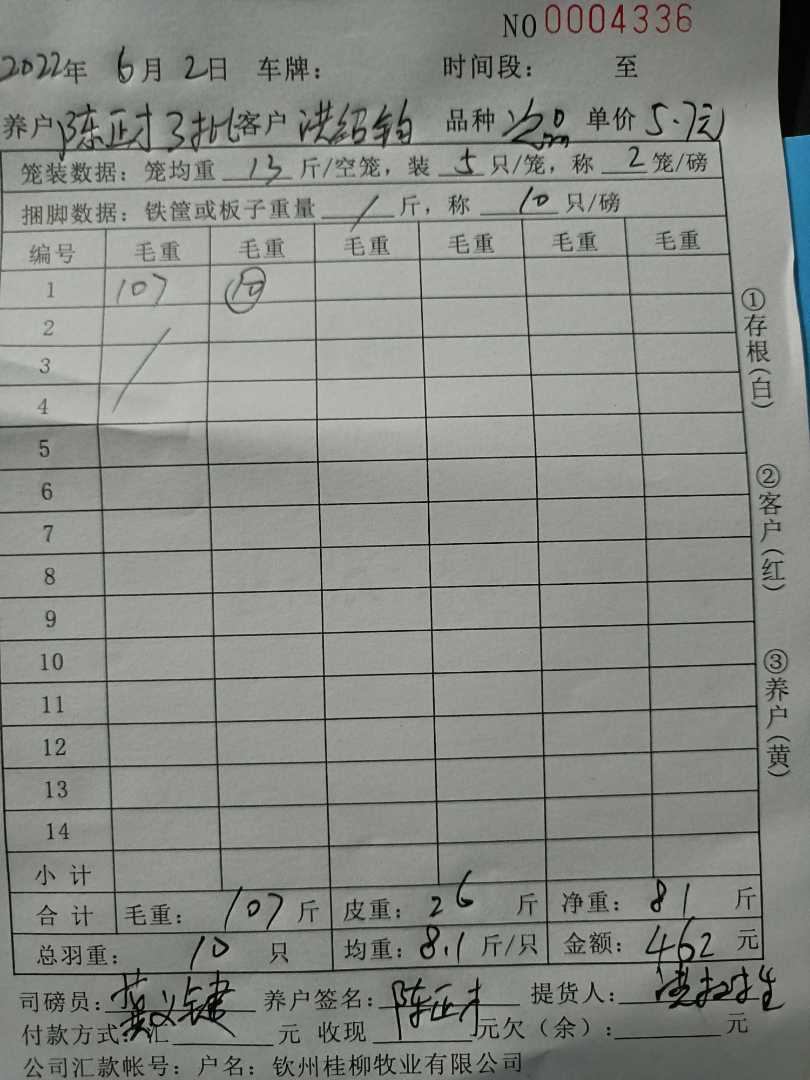 NO 0004336
2022年 6月 2日 车牌： 时间段： 至
养户 陈正才3批 客户 洪绍钧 品种 次品 单价 5.7元
笼装数据：笼均重 13 斤/空笼，装 5 只/笼，称 2 笼/磅
捆脚数据：铁筐或板子重量 / 斤，称 10 只/磅
编号 毛重 毛重 毛重 毛重 毛重 毛重
1 107 10
2
3
4
5
6
7
8
9
10
11
12
13
14
小计
合计 毛重： 107 斤 皮重： 26 斤 净重： 81 斤
总羽重： 10 只 均重：8.1 斤/只 金额： 462 元
司磅员： 养户签名：陈正才 提货人：
付款方式：汇 元 收现 元欠（余）： 元
公司汇款帐号：户名：钦州桂柳牧业有限公司
①存根（白）
②客户（红）
③养户（黄）